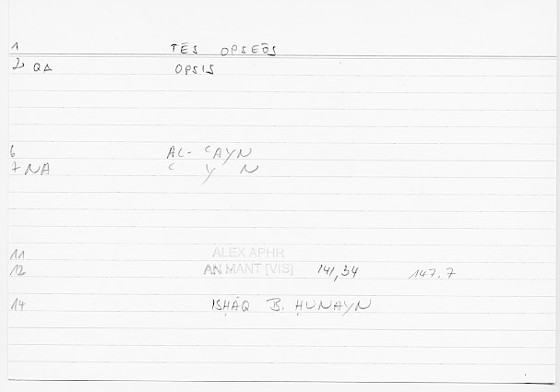 1 TĒS OPSEŌS
2 QA OPSIS
6 AL- ʿAYN
7 NA ʿ Y N
11 ALEX APHR
12 AN MANT [VIS] 141,34 147.7
14 ISḤĀQ B. ḤUNAYN